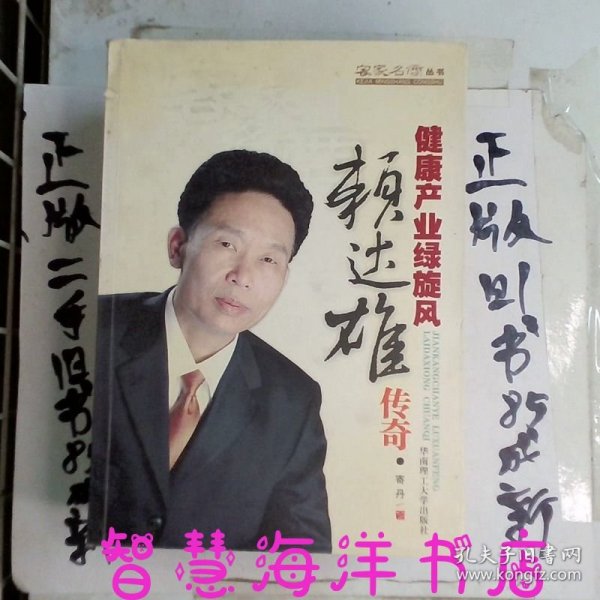 客家名商丛书
KEJIA MINGSHANG CONGSHU
健康产业绿旋风
赖达雄
传奇
JIANKANGCHANYE LUXUANFENG
LAIDAXIONG CHUANQI
寄丹 著
华南理工大学出版社
正版二手旧书85成新
正版旧书85成新
智慧海洋书店
孔夫子旧书网
www.kongfz.com